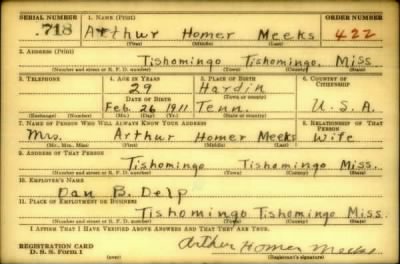 SERIAL NUMBER 1. NAME (Print) ORDER NUMBER
718 Arthur Homer Meeks 422
(First) (Middle) (Last)
2. ADDRESS (Print)
Tishomingo Tishomingo. Miss.
(Number and street or R. F. D. number) (Town) (County) (State)
3. TELEPHONE 4. AGE IN YEARS 5. PLACE OF BIRTH 6. COUNTRY OF CITIZENSHIP
29 Hardin
DATE OF BIRTH (Town or county)
Feb. 26 1911 Tenn. U.S.A.
(Exchange) (Number) (Mo.) (Day) (Yr.) (State or country)
7. NAME OF PERSON WHO WILL ALWAYS KNOW YOUR ADDRESS 8. RELATIONSHIP OF THAT PERSON
Mrs. Arthur Homer Meeks Wife
(Mr., Mrs., Miss) (First) (Middle) (Last)
9. ADDRESS OF THAT PERSON
Tishomingo Tishomingo Miss.
(Number and street or R. F. D. number) (Town) (County) (State)
10. EMPLOYER'S NAME
Dan B. Delp
11. PLACE OF EMPLOYMENT OR BUSINESS
Tishomingo Tishomingo Miss.
(Number and street or R. F. D. number) (Town) (County) (State)
I AFFIRM THAT I HAVE VERIFIED ABOVE ANSWERS AND THAT THEY ARE TRUE.
REGISTRATION CARD Arthur Homer Meeks
D. S. S. Form 1 (over) (Registrant's signature)